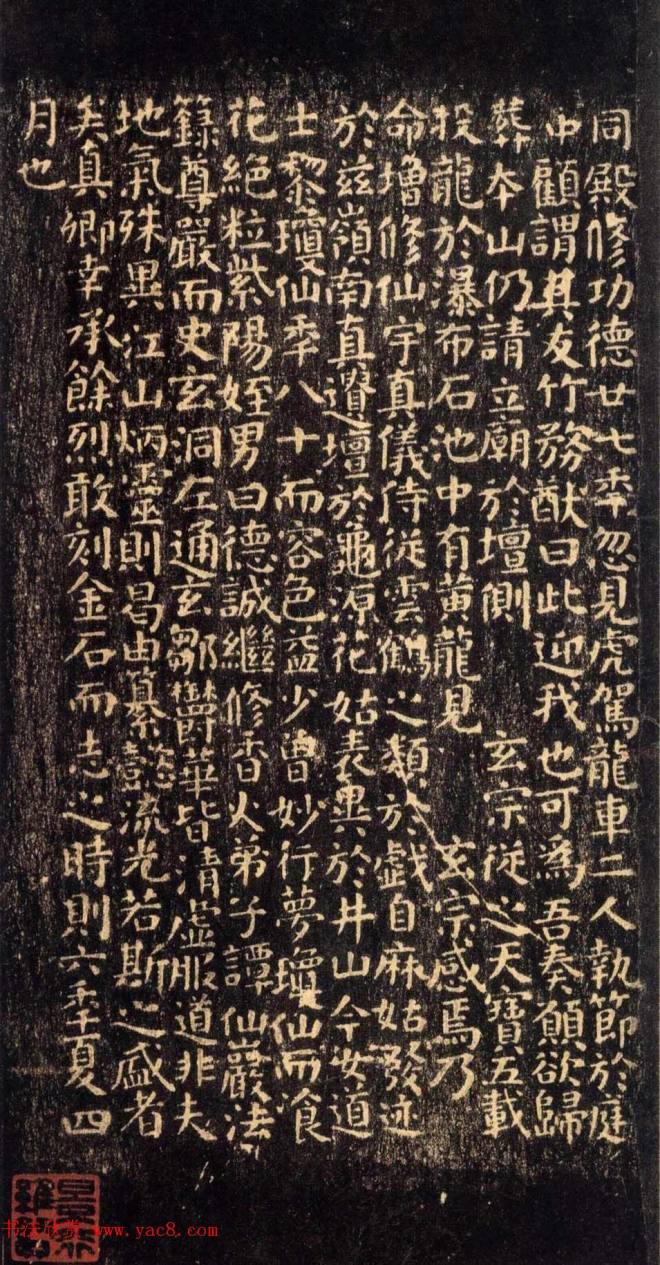 同殿修功德廿七年忽見虎駕龍車二人執節於庭
中顧謂其友竹務猷曰此迎我也可為吾奏願欲歸
葬本山仍請立廟於壇側 玄宗從之天寶五載
投龍於瀑布石池中有黃龍見 玄宗感焉乃
命增修仙宇真儀侍從雲鶴之類於戲自麻姑發迹
於茲嶺南真遺壇於龜源花姑表異於井山今女道
士黎瓊仙年八十而容色益少曾妙行夢瓊仙而飡
花絕粒紫陽姪男曰德誠繼修香火弟子譚仙巖法
籙尊嚴而史玄洞左通玄鄒鬱華皆清虛服道非夫
地氣殊異江山炳靈則曷由纂懿流光若斯之盛者
矣真卿幸承餘烈敢刻金石而志之時則六年夏四
月也
www.yac8.com